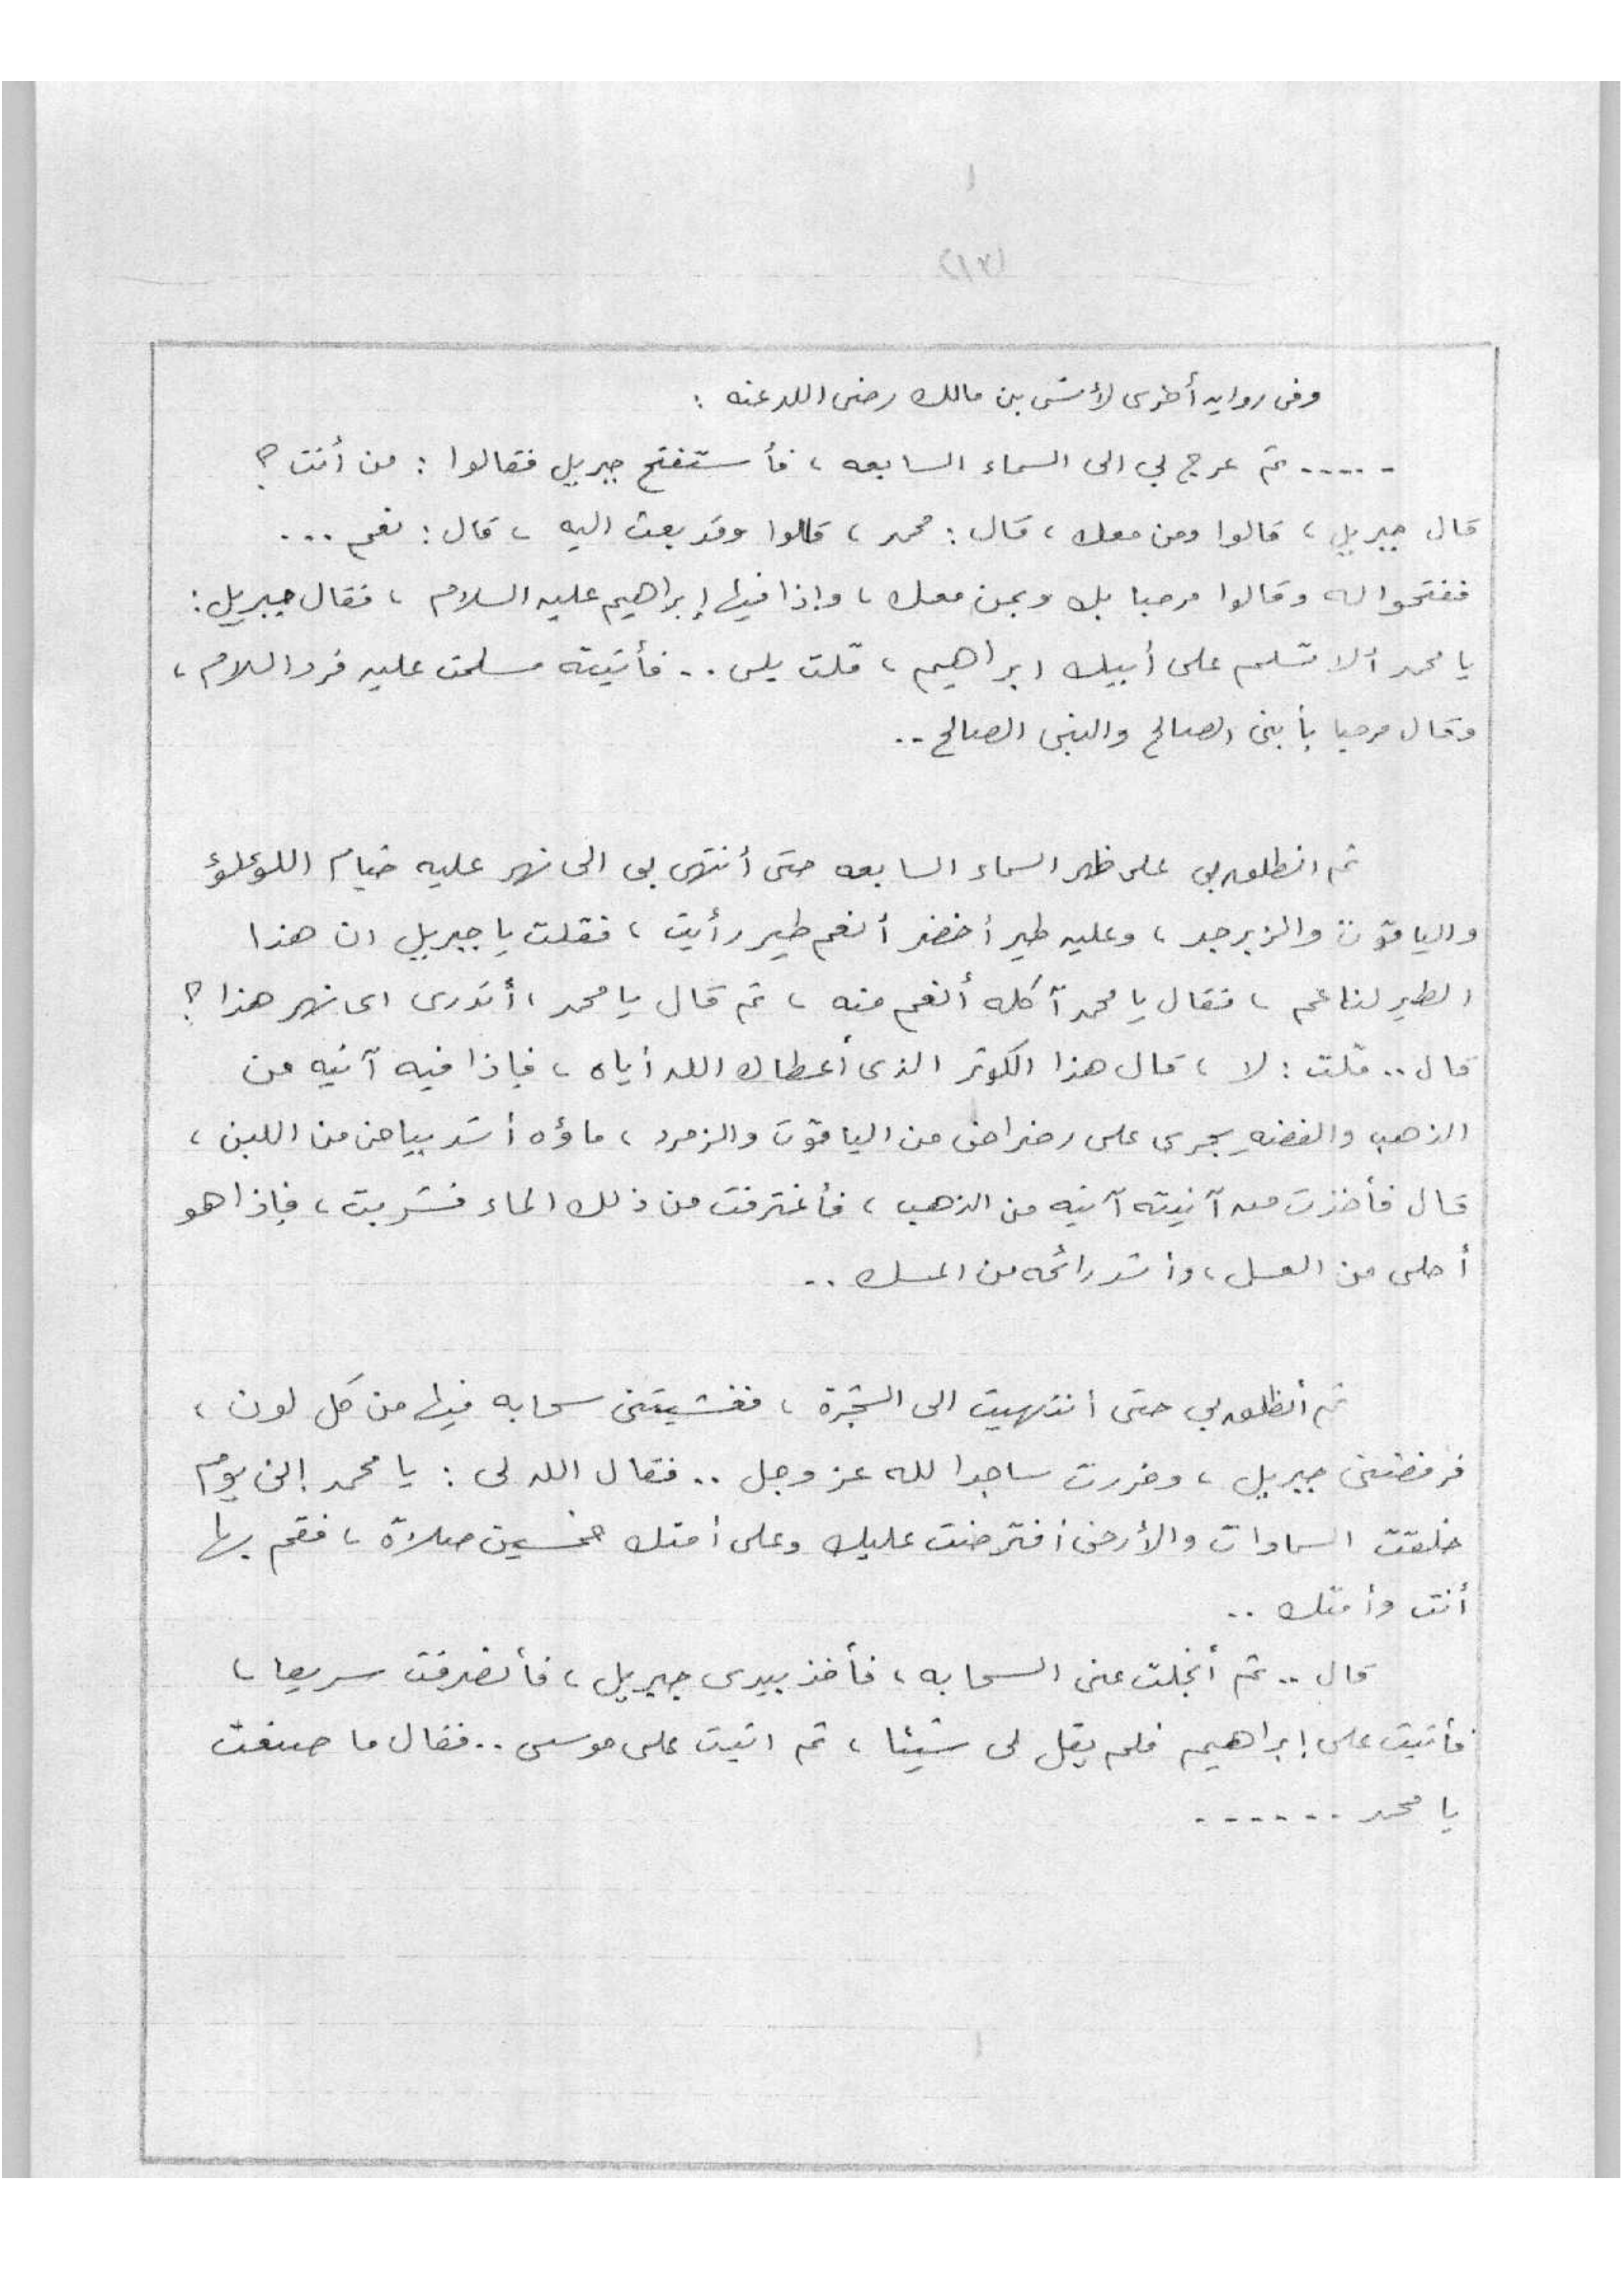 (١٣)
وفى روايه أخرى لأنس بن مالك رضى الله عنه :
------ ثم عرج بي الى السماء السابعه ، فأستفتح جبريل فقالوا : من أنت ؟
قال جبريل ، قالوا ومن معك ، قال : محمد ، قالوا وقد بعث اليه ، قال : نعم ...
ففتحوا له وقالوا مرحبا بك وبمن معك ، وإذا فيها إبراهيم عليه السلام ، فقال جبريل :
يا محمد ألا تسلم على أبيك ابراهيم ، قلت بلى .. فأتيته فسلمت عليه فرد السلام ،
وقال مرحبا بأبنى الصالح والنبى الصالح ..
ثم انطلق بي على ظهر السماء السابعه حتى أنتهى بى الى نهر عليه خيام اللؤلؤ
والياقوت والزبرجد ، وعليه طير أخضر أنعم طير رأيت ، فقلت يا جبريل ان هذا
الطير لناعم ، فقال يا محمد آكله أنعم منه ، ثم قال يا محمد ، أتدرى اى نهر هذا ؟
قال .. قلت : لا ، قال هذا الكوثر الذى أعطاك الله أياه ، فإذا فيه آنيه من
الذهب والفضه يجرى على رضراض من الياقوت والزمرد ، ماؤه أشد بياض من اللبن ،
قال فأخذت من آنيته آنيه من الذهب ، فأغترفت من ذلك الماء فشربت ، فإذا هو
أحلى من العسل ، وأشد رائحه من المسك ..
ثم أنطلق بي حتى أنتهيت الى الشجرة ، فغشيتنى سحابه فيها من كل لون ،
فرفضنى جبريل ، وخررت ساجدا لله عز وجل .. فقال الله لى : يا محمد إنى يوم
خلقت السماوات والأرض أفترضت عليك وعلى أمتك خمسين صلاة ، فقم بها
أنت وأمتك ..
قال .. ثم أنجلت عنى السحابه ، فأخذ بيدى جبريل ، فأنصرفت سريعا ،
فأتيت على إبراهيم فلم يقل لى شيئا ، ثم اتيت على موسى .. فقال ما صنعت
يا محمد ------